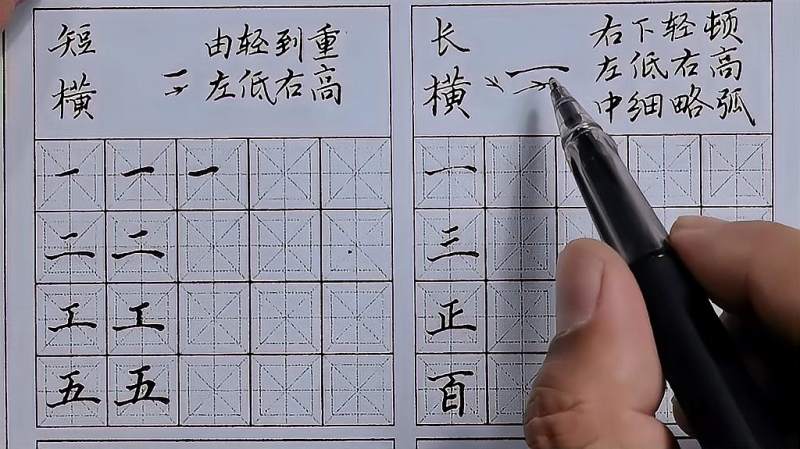 短横
由轻到重
左低右高
一 一 一
二 二
工 工
五 五
长横
右下轻顿
左低右高
中细略弧
一
三
正
百